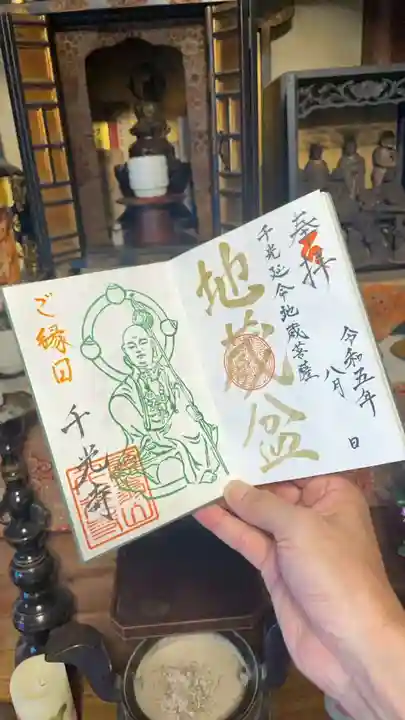 奉拝
令和五年
八月 日
千光延命地蔵菩薩
地蔵盆
ご縁日
千光寺